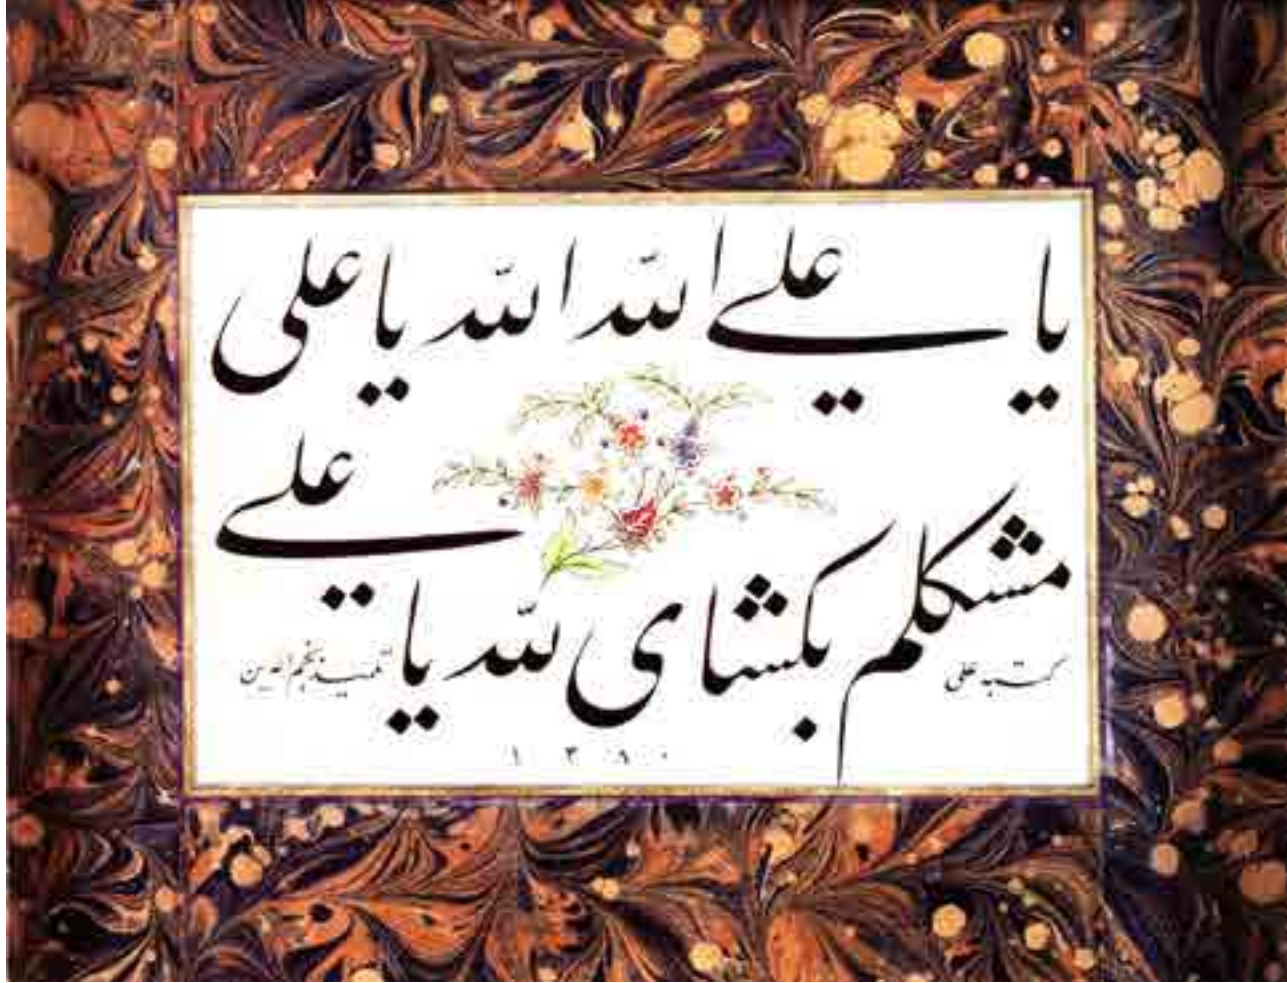 یا علی الله الله یا علی
مشکلم بگشای لله یا علی
کتبه علی تلمیذ نجم الدین
۱۳۸۰